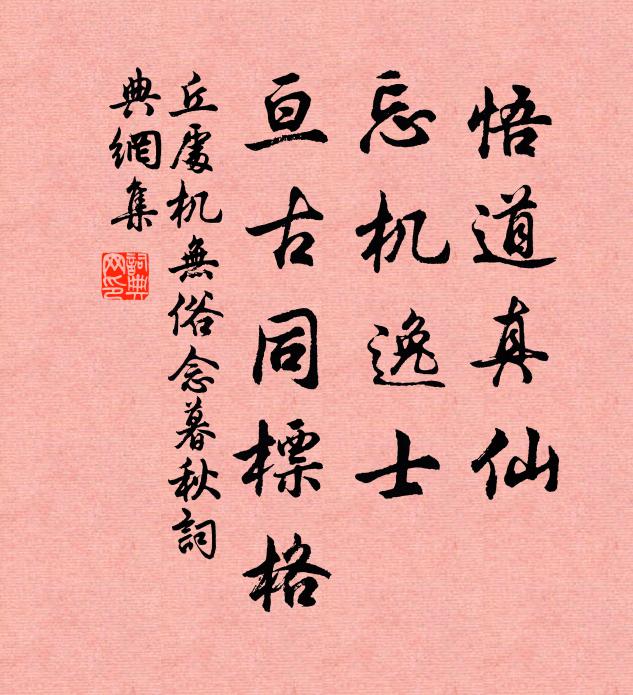 悟道真仙
忘机逸士
亘古同標格
丘處机無俗念暮秋詞
典網集
詞典網印